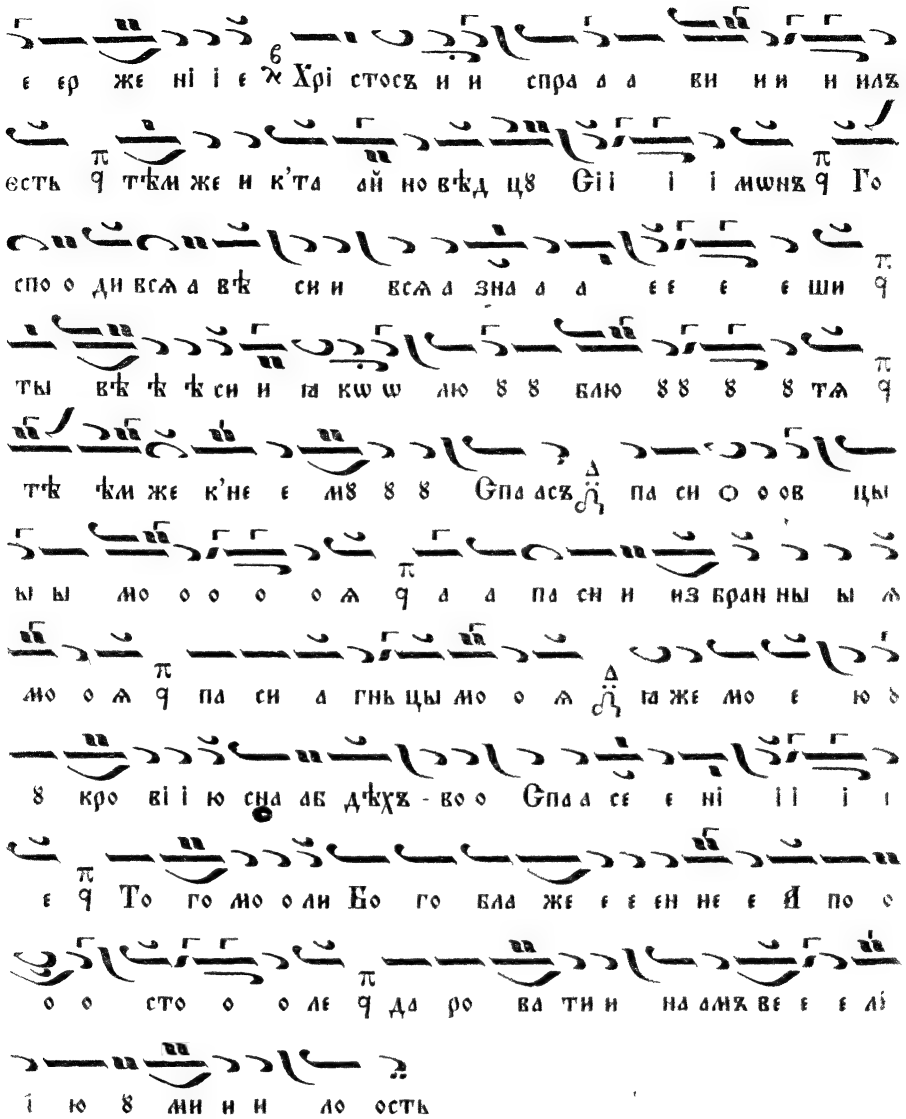 є єр же ні і є Хрі стосъ и и спра а а ви и и и илъ
єсть тѣм же и к’та ай но вѣд цꙋ Сі і і і мѡнъ Го
спо о ди всѧ а вѣ си и всѧ а зна а а є є є є ши
ты вѣ ѣ ѣ си и ꙗ кѡ ѡ лю ꙋ ꙋ блю ꙋ ꙋ ꙋ ꙋ тѧ
тѣ ѣм же к’не є мꙋ ꙋ ꙋ Спа асъ па си о о ов цы
ы ы мо о о о о ѧ а а па си и из бран ны ы ѧ
мо о ѧ па си а гнь цы мо о ѧ ꙗ же мо є ю
ꙋ кро ві і ю сна аб дѣхъ - во о Спа а сє є ні і і і і
є То го мо о ли Бо го бла же є є єн не є А по о
о о сто о о ле да ро ва ти и на амъ ве є є лі
і ю ꙋ ми и и ло ость